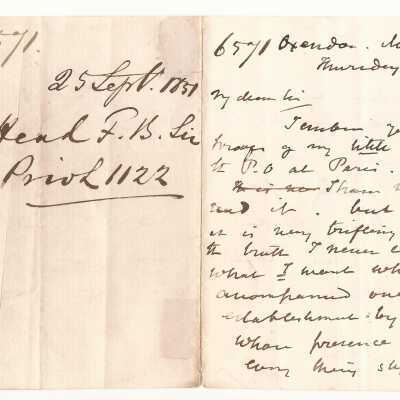 571.
25 Sept. 1851
Head F. B. Sir
Privh 1122
6571 Oxendon.
Thursday
My dear Sir
of my little
P.O at Paris.
I have
read it. but
it is very trifling
the truth I never
what I went
accompanied
establishment by
whose presence
every thing